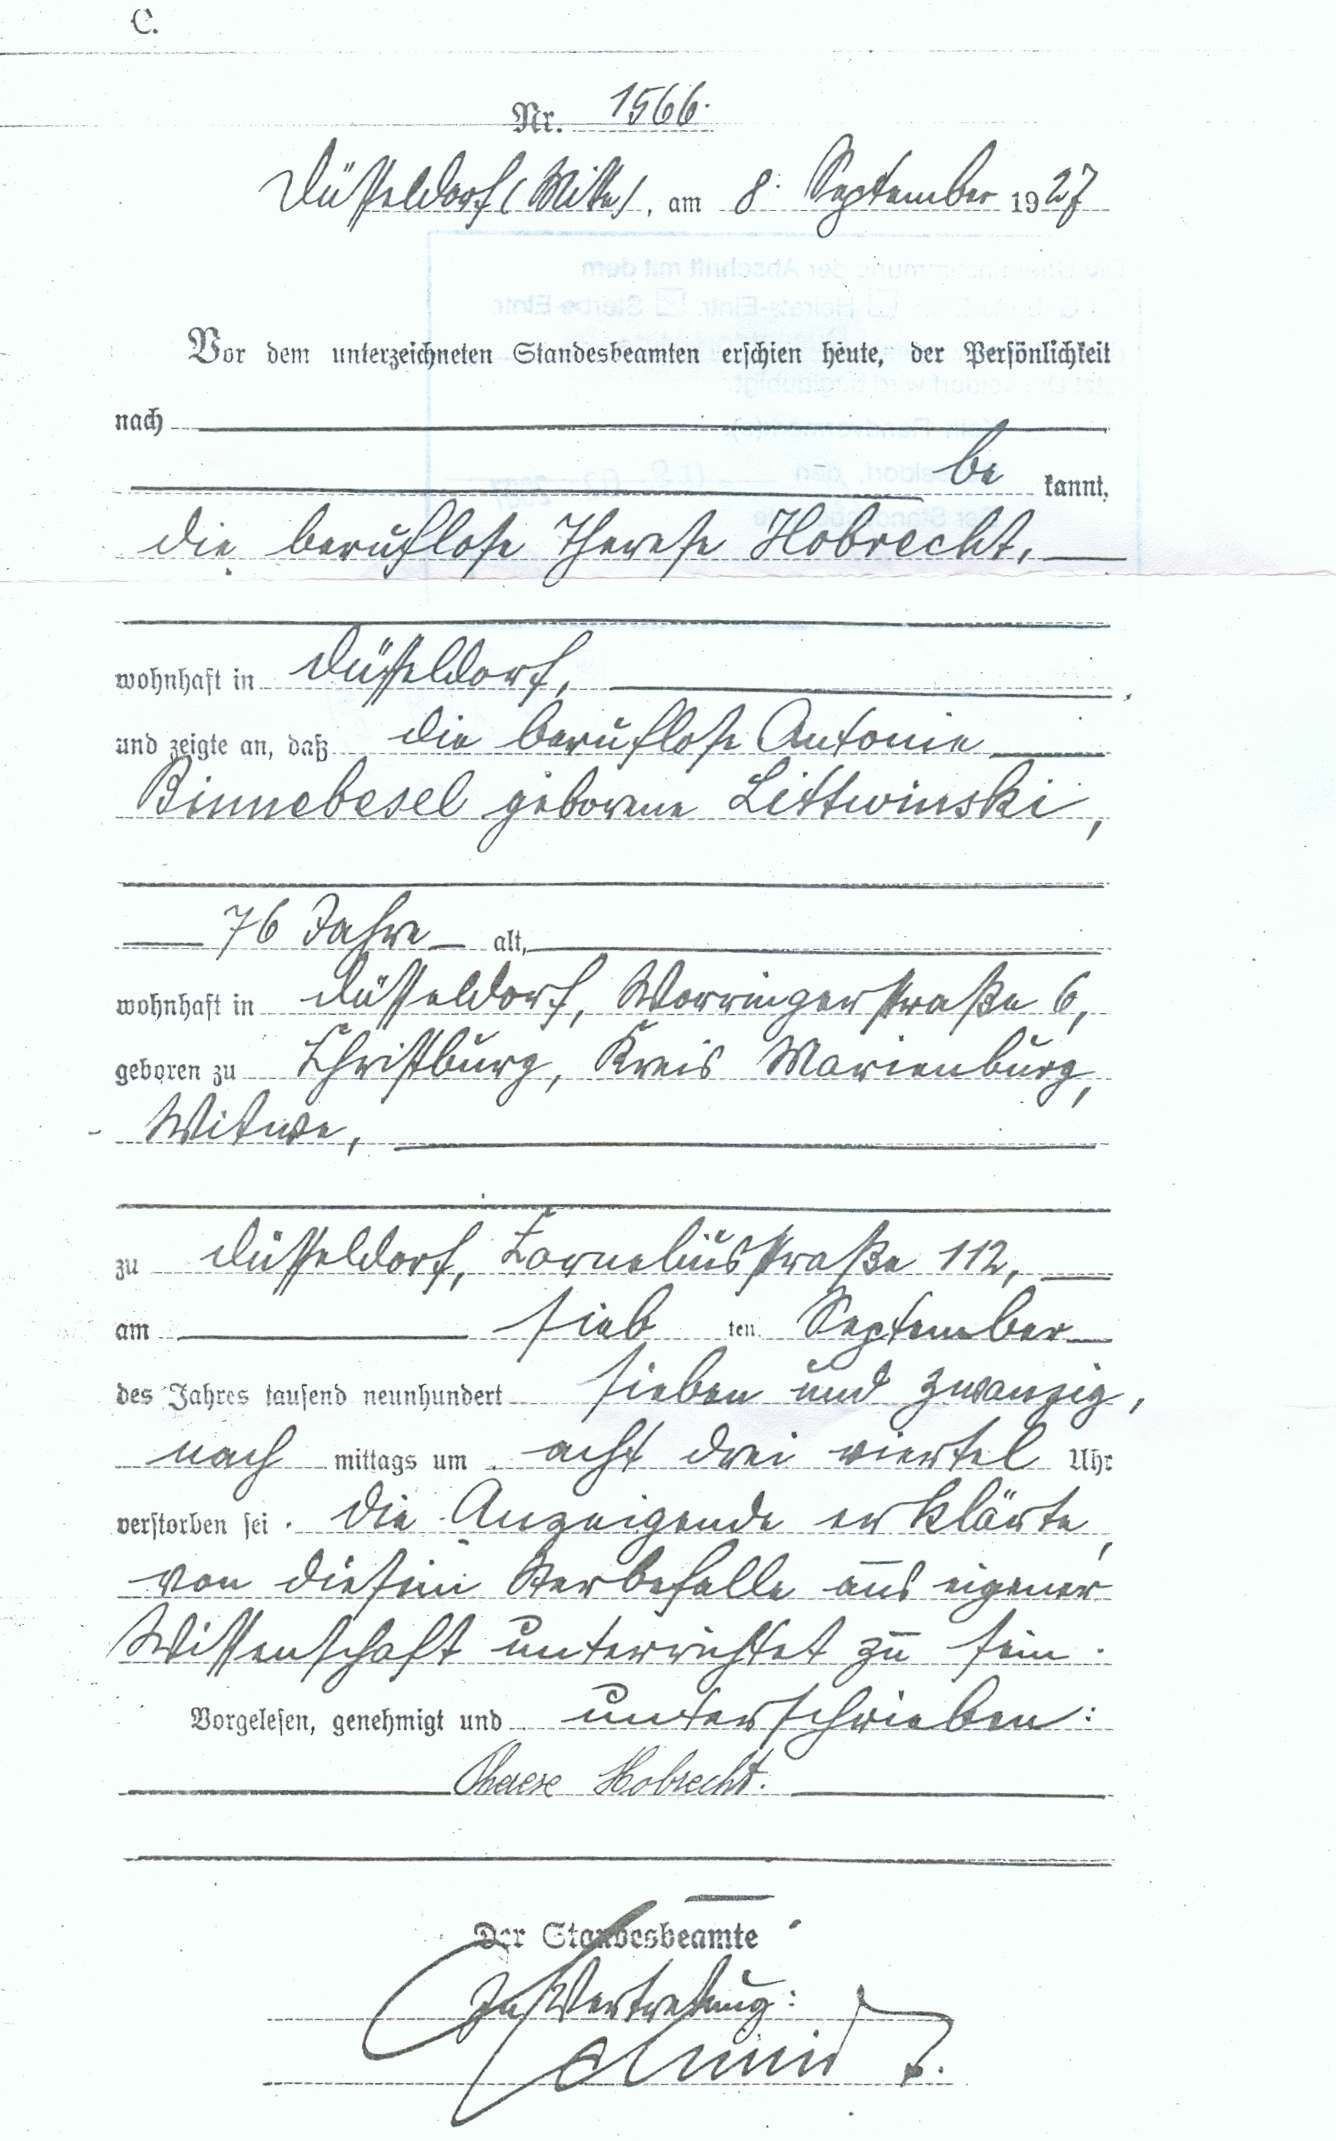 C.
Nr. 1566.
Düsseldorf (Mitte), am 8. September 1927
Vor dem unterzeichneten Standesbeamten erschien heute, der Persönlichkeit
nach
be kannt,
die berufslose Therese Hobrecht,
wohnhaft in Düsseldorf,
und zeigte an, daß die berufslose Antonie
Binnebesel geborene Littwinski,
76 Jahre alt,
wohnhaft in Düsseldorf, Worringerstraße 6,
geboren zu Christburg, Kreis Marienburg,
Witwe,
zu Düsseldorf, Corneliusstraße 112,
am sieb ten September
des Jahres tausend neunhundert sieben und zwanzig,
nach mittags um acht drei viertel Uhr
verstorben sei. Die Anzeigende erklärte,
von diesem Sterbefalle aus eigener
Wissenschaft unterrichtet zu sein.
Vorgelesen, genehmigt und unterschrieben:
Therese Hobrecht.
Der Standesbeamte
In Vertretung: